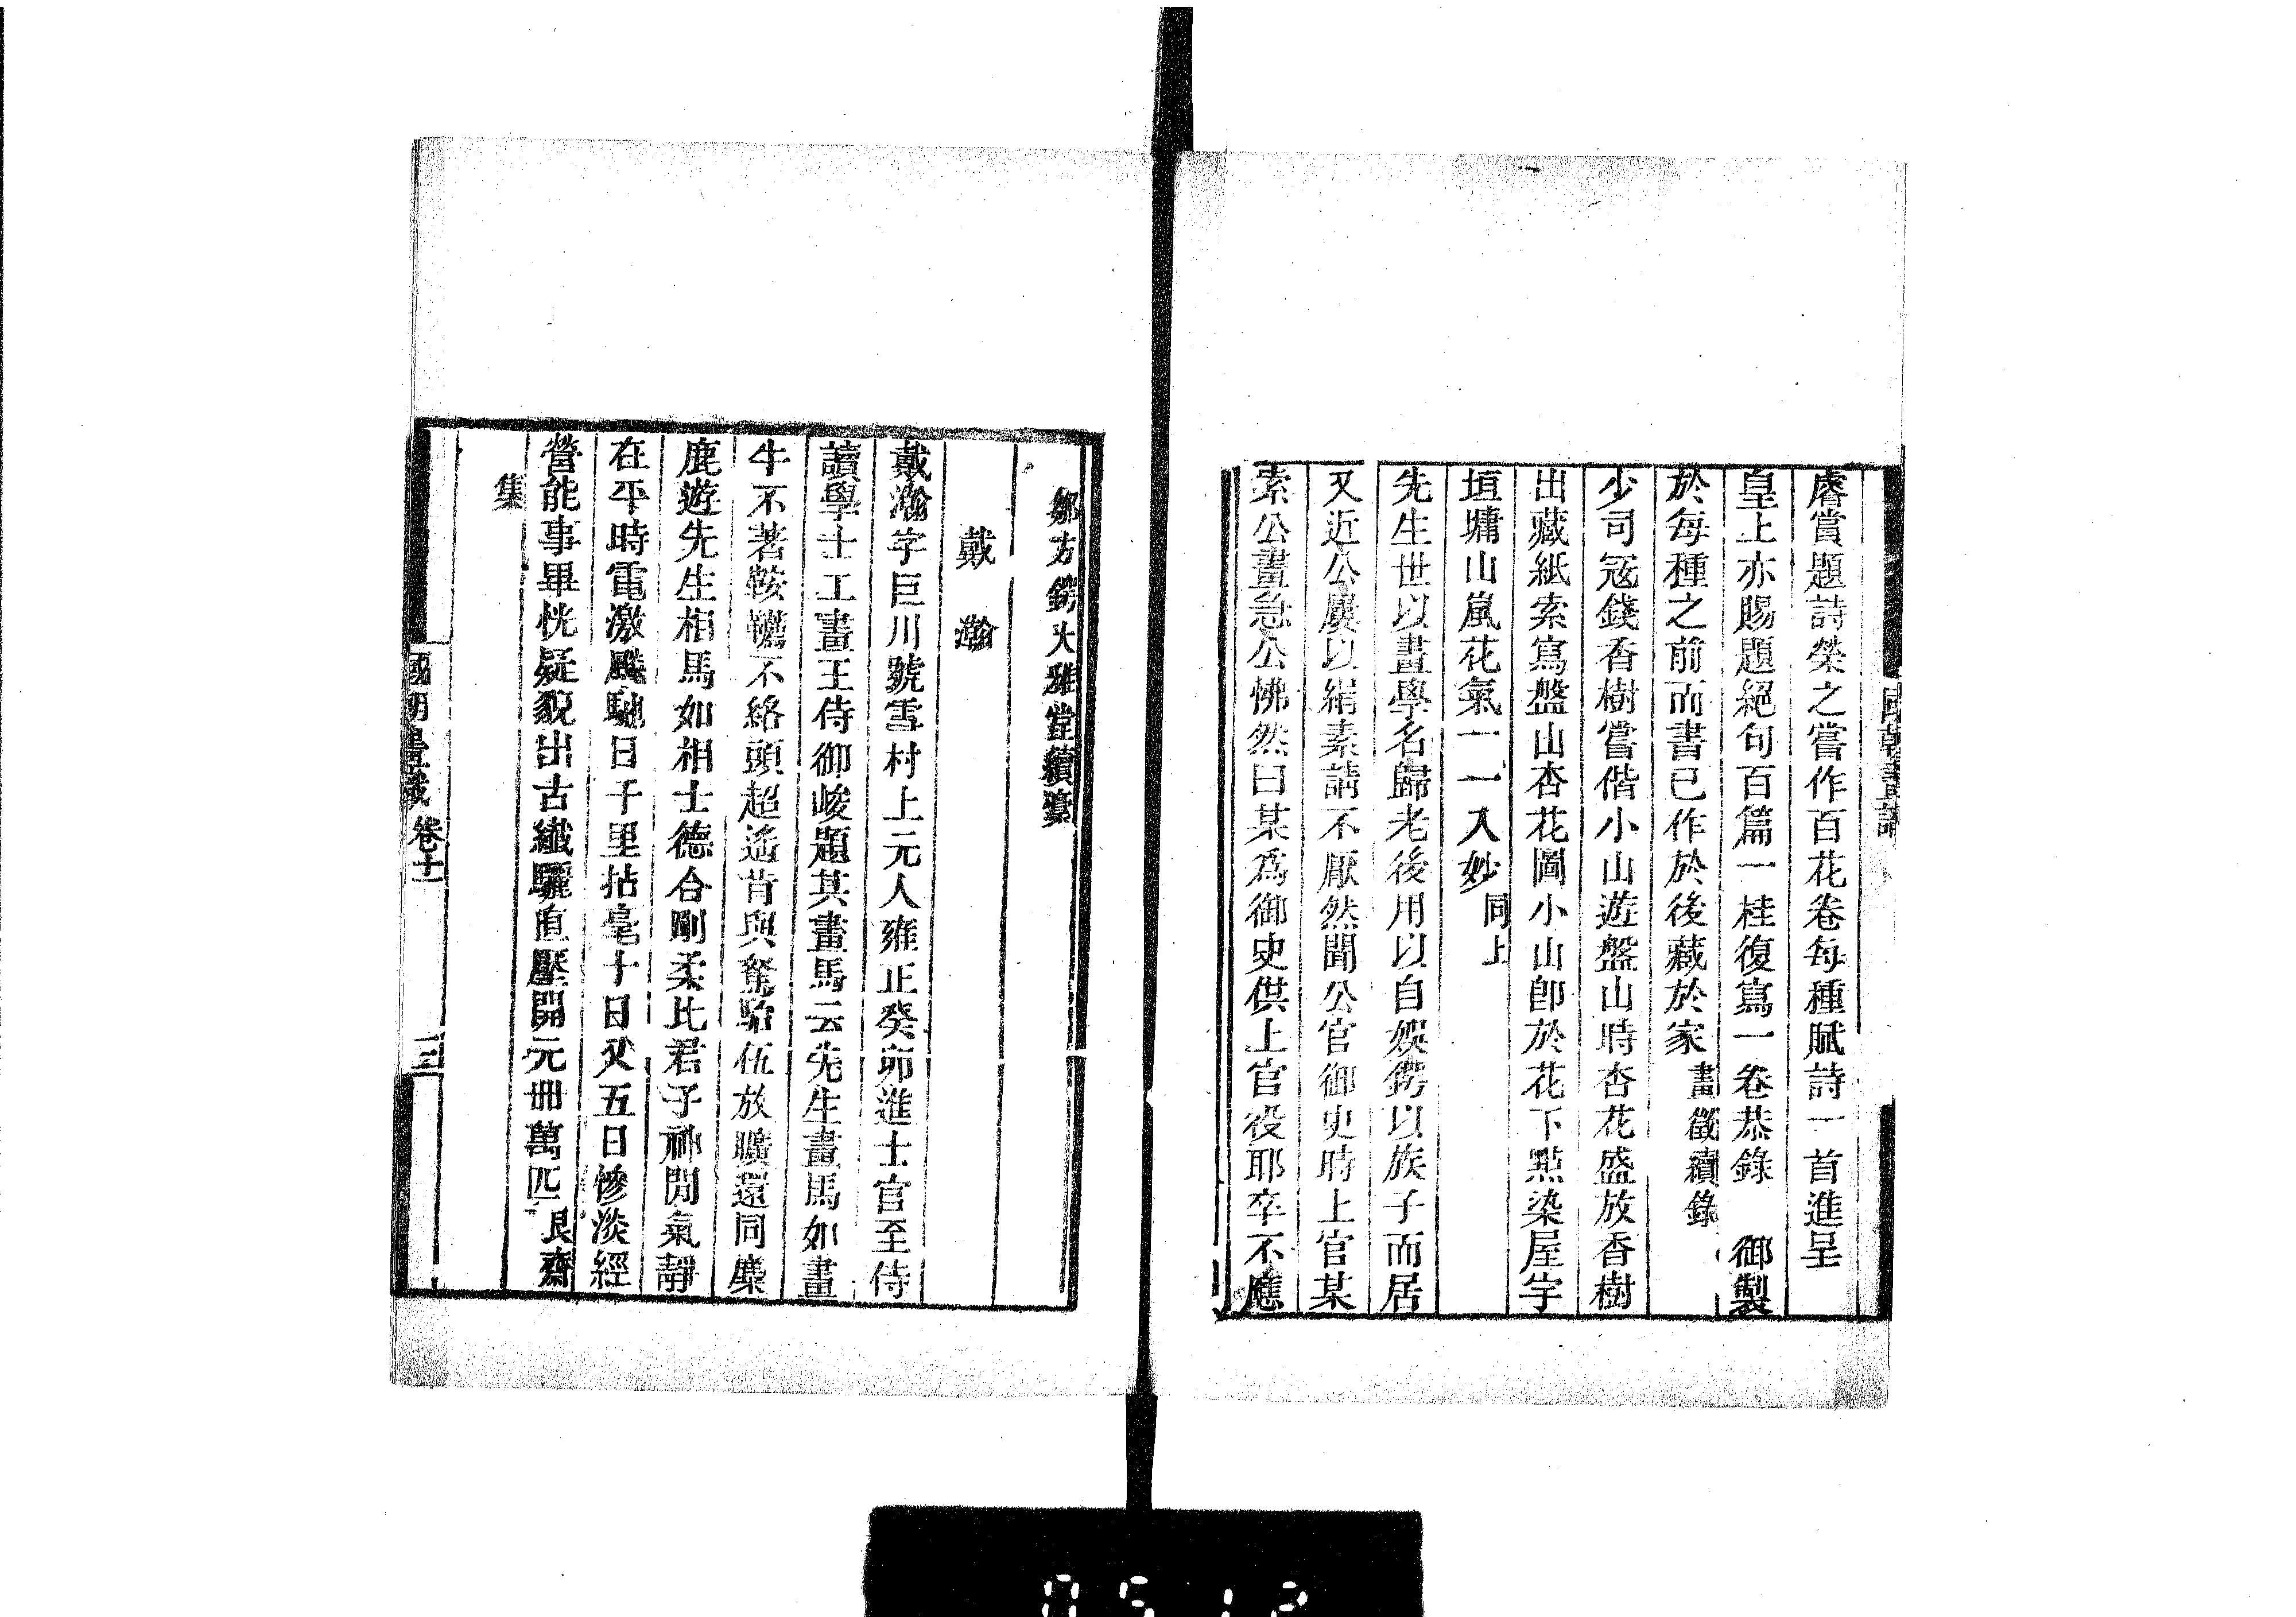 國朝畫識
睿賞題詩榮之嘗作百花卷每種賦詩一首進呈
皇上亦賜題絕句百篇一桂復寫一卷恭錄 御製
於每種之前而書已作於後藏於家畫徵續錄
少司寇錢香樹嘗偕小山遊盤山時杏花盛放香樹
出藏紙索寫盤山杏花圖小山卽於花下點染屋宇
垣墉山嵐花氣一一入妙同上
先生世以畫學名歸老後用以自娛鍔以族子而居
又近公屢以絹素請不厭然聞公官御史時上官某
索公畫急公怫然曰某爲御史供上官役耶卒不應
鄒方鍔大雅堂續藁
戴瀚
戴瀚字巨川號雪村上元人雍正癸卯進士官至侍
讀學士工畫王侍御峻題其畫馬云先生畫馬如畫
牛不著鞍韉不絡頭超遙肯與駑駘伍放曠還同麋
鹿遊先生相馬如相士德合剛柔比君子神閒氣靜
在平時電激飈馳日千里拈毫十日又五日慘淡經
營能事畢恍疑貌出古纖驪直壓開元冊萬匹艮齋
集
國朝畫識 卷十一 三